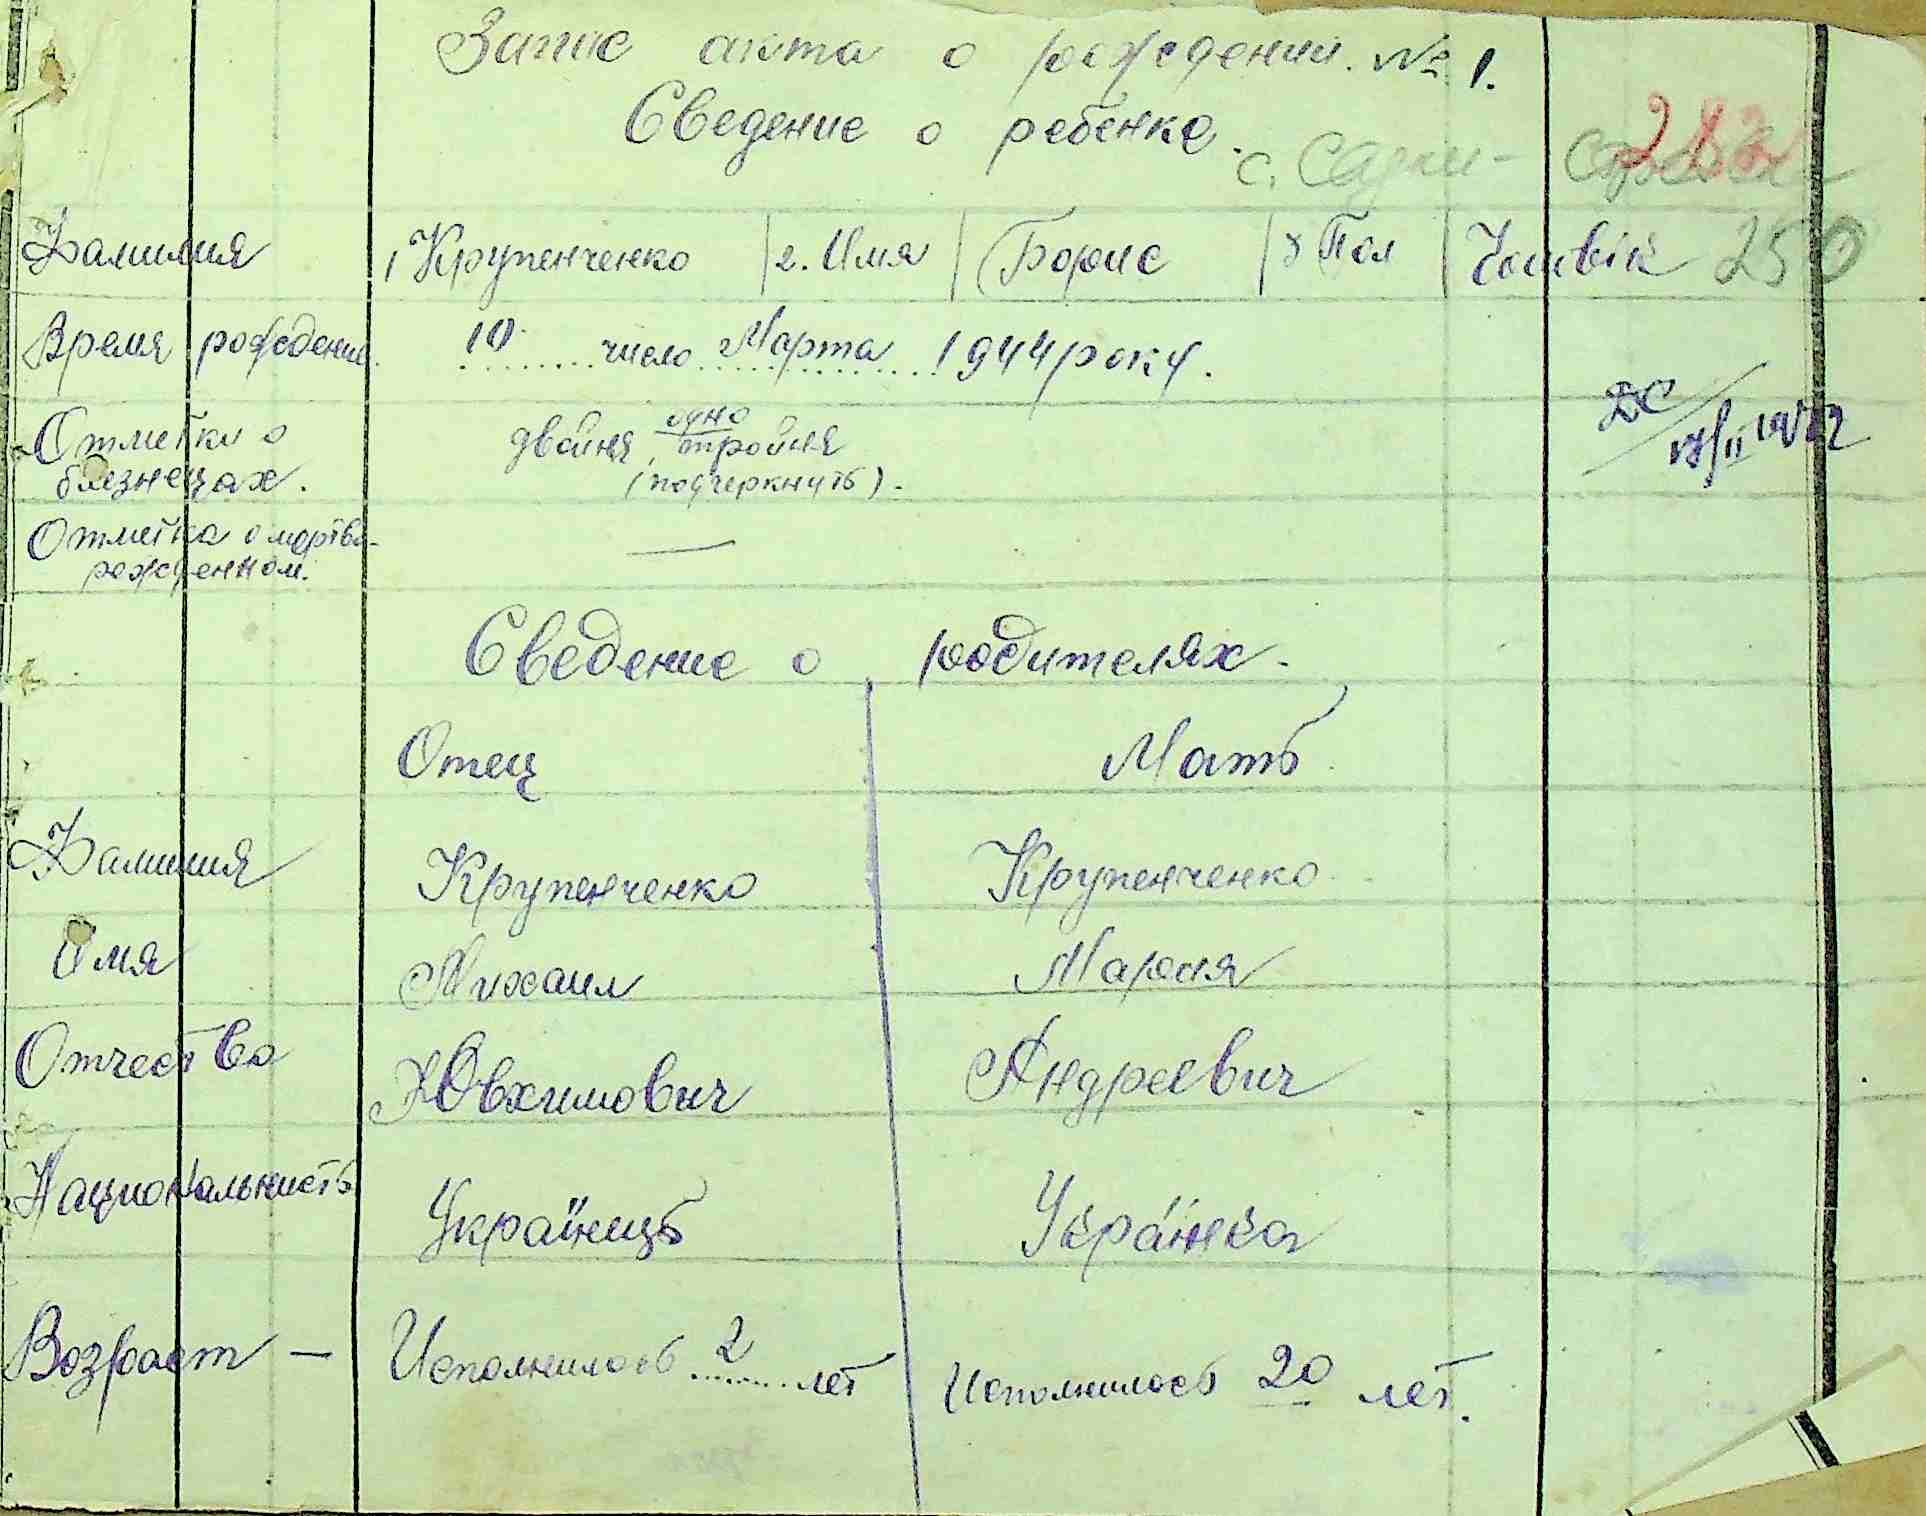 Запис акта о рождении. № 1.
Сведение о ребенке.
с. Садки-
Фамилия 1 Крупенченко 2. Имя Борис 3 Пол Чоловік 250
Время рождение 10 число Марта 1944 року.
Отметки о близнецах. двойня, одно тройня (подчеркнуть).
Отметка о мертво-
рожденном. —
Сведение о родителях.
Отец Мать
Фамилия Крупенченко Крупенченко
Имя Михаил Мария
Отчество Ювхимович Андреевич
Национальность Українець Українка
Возраст — Исполнилось 2 лет Исполнилось 20 лет.